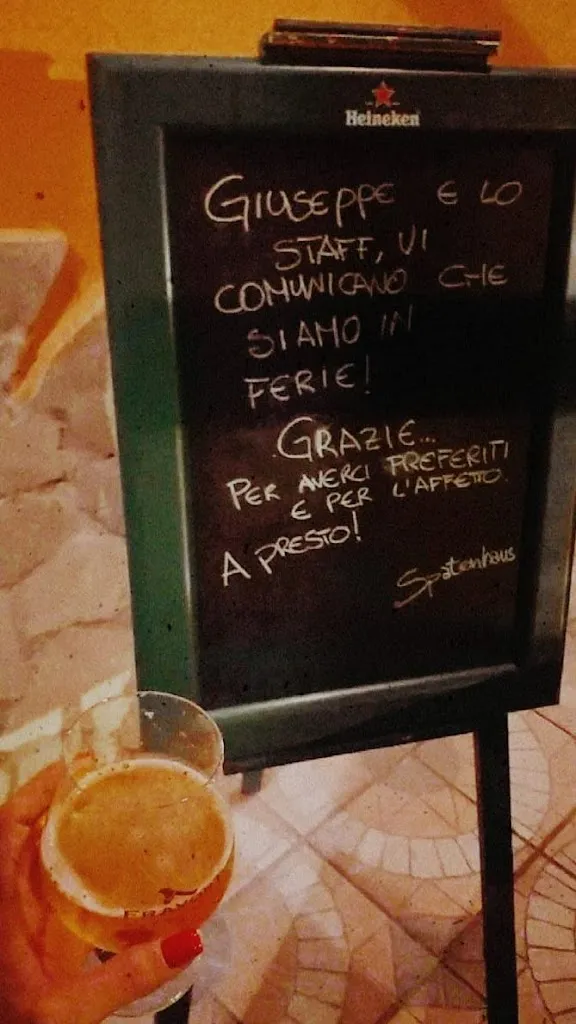 Heineken
GIUSEPPE E LO
STAFF, VI
COMUNICANO CHE
SIAMO IN
FERIE!
GRAZIE...
PER AVERCI PREFERITI
E PER L'AFFETTO.
A PRESTO!
Spatenhaus